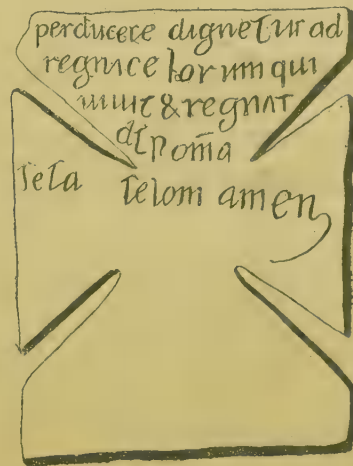 perducere dignetur ad
regnice lorum qui
uiuit & regnat
ds p om̄a
sela selom amen